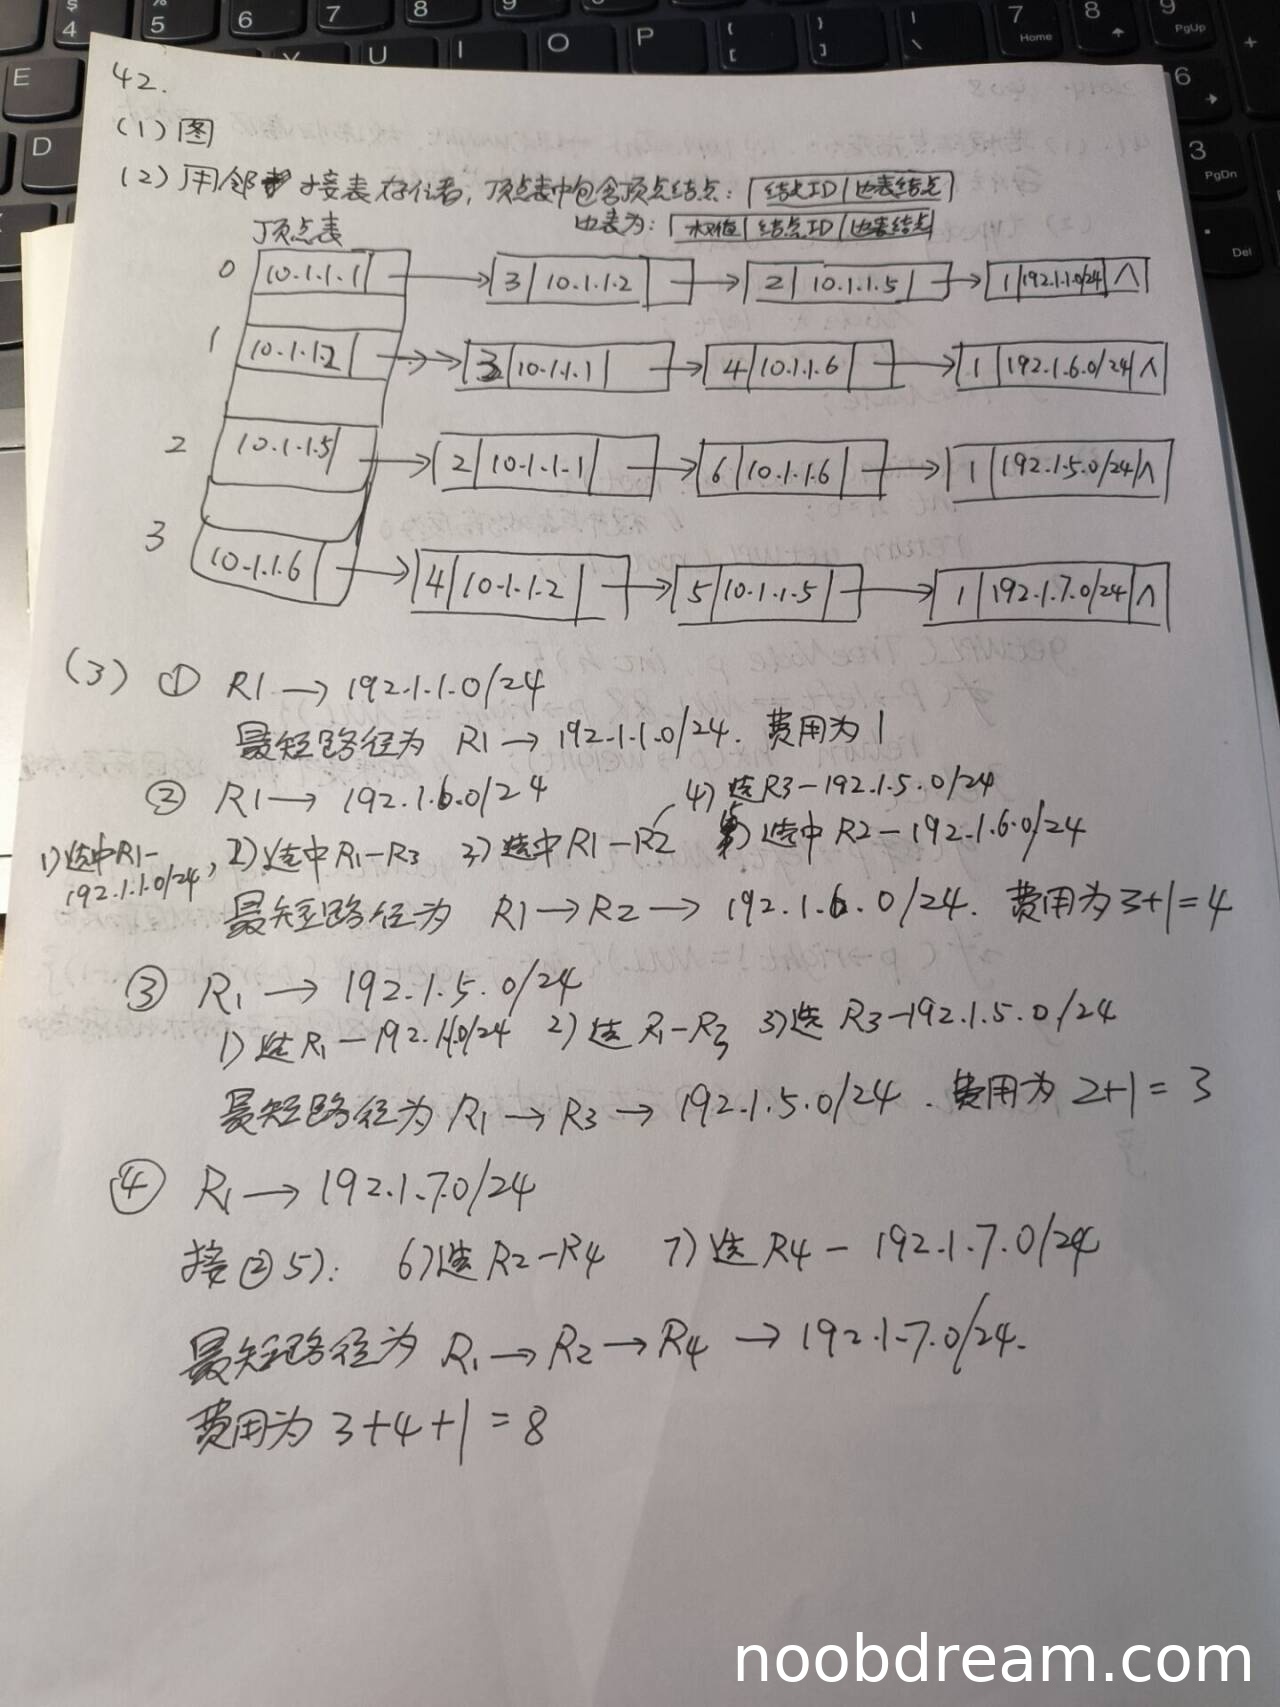 42.
(1) 图
(2) 用邻接表存储, 顶点表中包含顶点结点: 结点ID | 边表结点
边表为: 权值 | 结点ID | 边表结点
顶点表
0 10.1.1.1 → 3 | 10.1.1.2 → 2 | 10.1.1.5 → 1 | 192.1.1.0/24 | ∧
1 10.1.1.2 → 3 | 10.1.1.1 → 4 | 10.1.1.6 → 1 | 192.1.6.0/24 | ∧
2 10.1.1.5 → 2 | 10.1.1.1 → 6 | 10.1.1.6 → 1 | 192.1.5.0/24 | ∧
3 10.1.1.6 → 4 | 10.1.1.2 → 5 | 10.1.1.5 → 1 | 192.1.7.0/24 | ∧
(3) ① R1 → 192.1.1.0/24
最短路径为 R1 → 192.1.1.0/24. 费用为1
② R1 → 192.1.6.0/24
4) 选R3-192.1.5.0/24
1) 选中R1-192.1.1.0/24, 2) 选中R1-R3 3) 选中R1-R2 5) 选中R2-192.1.6.0/24
最短路径为 R1 → R2 → 192.1.6.0/24. 费用为3+1=4
③ R1 → 192.1.5.0/24
1) 选R1-192.1.1.0/24 2) 选R1-R3 3) 选R3-192.1.5.0/24
最短路径为 R1 → R3 → 192.1.5.0/24. 费用为 2+1=3
④ R1 → 192.1.7.0/24
接②5): 6) 选R2-R4 7) 选R4-192.1.7.0/24
最短路径为 R1 → R2 → R4 → 192.1.7.0/24.
费用为 3+4+1=8
noobdream.com